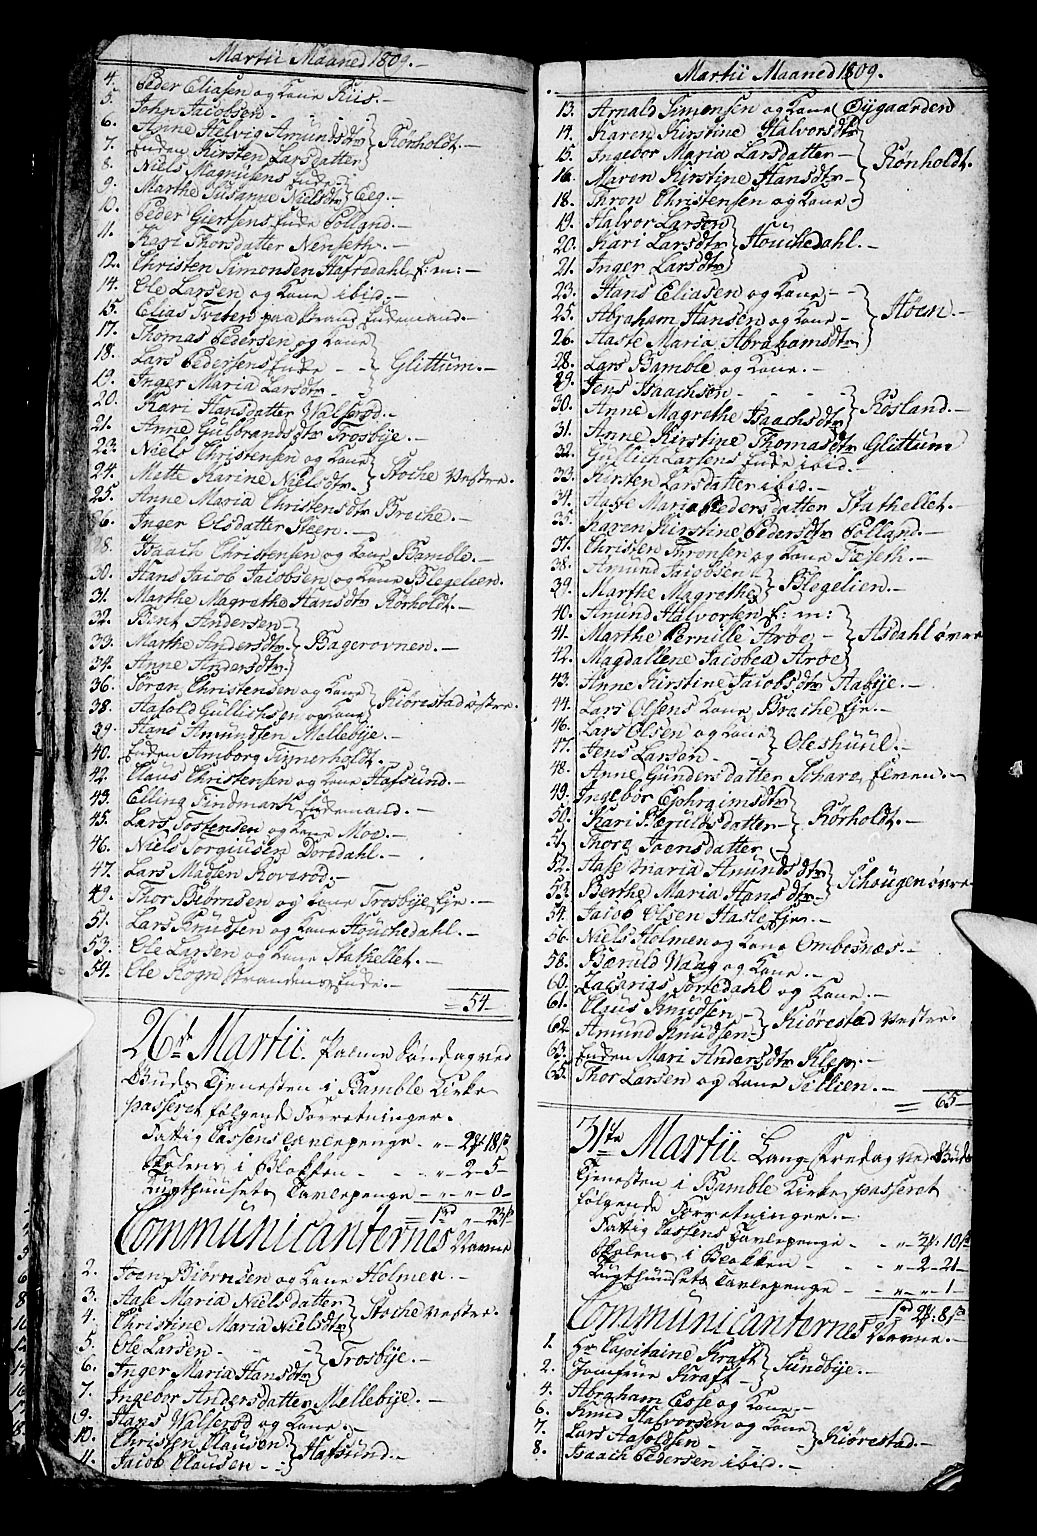 Martii Maaned 1809.-
4. Peder Eliasen og Kone Riis.-
5. John Jacobsen-
6. Anne Helvig Amundsdtr
7. Enken Kirsten Larsdatter Rörholdt.-
8. Niels Magnusens Enke
9. Marthe Susanne Nielsdtr Eeg.-
10. Peder Giertsens Enke Polland.
11. Kari Thorsdatter Nenseth.-
12. Christen Simonsen Hafredahl E: m:-
14. Ole Larsen og Kone ibid.-
15. Elias Tveten paa Strand Enkemand.-
17. Thomas Pedersen og Kone
18. Lars Pedersens Enke - - Glittum.-
19. Inger Maria Larsdtr
20. Kari Hansdatter Valserød.-
21. Anne Gulbrandsdtr Trosbye.-
23. Niels Christensen og Kone
24. Mette Karine Nielsdtr. Stoche Vestre.-
25. Anne Maria Christensdtr Breche.-
26. Inger Olsdatter Steen.-
28. Isaach Christensen og Kone Bamble.-
30. Hans Jacob Jacobsen og Kone Blegelien.
31. Marthe Magrethe Hansdtr Rörholdt.-
32. Bent Andersen-
33. Marthe Andersdtr. Bagerovnen.-
34. Anne Andersdtr.
36. Søren Christensen og Kone
38. Hafold Gullichsen og Kone Kiörestad østre.
39. Hans Amundsen Mellebye.-
40. Enken Amborg Tinnerholdt.-
42. Claus Christensen og Kone Hafsund.-
43. Elling Findmark Enkemand.-
45. Lars Tostensen og Kone Moe.-
46. Niels Torgiusen Doredahl.-
47. Lars Madsen Roverød.-
49. Thor Biörnsen og Kone Trosbye Eje.-
51. Lars Knudsen og Kone Houchedahl.-
53. Ole Larsen og Kone Stathellet.-
54. Ole Rogn Strandens Enke.-
= 54-
26de Martii. Palme Søndag ved
Guds Tjenesten i Bamble Kirke
passeret følgende Forretninger.
Fattig Cassens Tavlepenge - " - 2
Skolens i Blokken - - " - 2 - 5 -
Tugthuusets Tavlepenge - " - " - 0 -
Communicanternes Navne
2. Joen Biörnsen og Kone Holmen.-
3. Aase Maria Nielsdatter
4. Christine Maria Nielsdtr Stoche Vestre.-
5. Ole Larsen - -
6. Inger Maria Hansdtr Trosbye.-
7. Ingebor Andersdatter Mellebye.-
9. Hans Valserød og Kone.-
10. Christen Clausen
11. Jacob Clausen - - Hafsund.-
Martii Maaned 1809.
13. Arnald Simensen og Kone Øygaarden
14. Karen Kirstine Halvorsdtr
15. Ingebor Maria Larsdatter-
16. Maren Kirstine Hansdtr- Rönholdt.
18. Thron Christensen og Kone-
19. Halvor Larson
20. Kari Larsdtr Houchedahl.-
21. Inger Larsdtr
23. Hans Eliasen og Kone- -
25. Abraham Hansen og Kone- Høen.-
26. Aaste Maria Abrahamsdtr
28. Lars Bamble og Kone.-
29. Jens Isaachsen - - - -
30. Anne Magrethe Isaachsdtr Rosland.-
31. Anne Kirstine Thomasdtr Glittum
32. Gullich Larsens Enke ibid.
33. Kirsten Larsdatter ibid.-
34. Aase Maria Pedersdatter Stathellet.-
35. Karen Kirstine Pedersdtr Polland.-
37. Christen Thronsen og Kone Tæseth.-
38. Amund Jacobsen
39. Marthe Magrethe Blegelien.-
40. Amund Halvorsen E: m:
41. Marthe Pernille Aroe - Asdahl øvre
42. Magdallene Jacobea Aroe
43. Anne Kirstine Jacobsdtr Aabye.-
44. Lars Olsens Kone Breche Eje.-
46. Lars Olsen og Kone
47. Jens Larsen - - Oleshuul.-
48. Anne Gundersdatter
49. Ingebor Ephraimsdtr
50. Kari Bæruldsdatter- Rörholdt.-
51. Thore Joensdatter
52. Aase Maria Amundsdtr
53. Berthe Maria Hansdtr- Schougen øvre
54. Jacob Olsen Haste Eje.-
56. Niels Holmen og Kone Ombesnæs.-
58. Bæruld Vaag og Kone.-
60. Zacarias Tortedahl og Kone.-
61. Claus Knudsen-
62. Amund Knudsen- Kiörestad Vestre.
63. Enken Mari Andersdtr Klep.-
65. Thor Larsen og Kone Sillien.-
= 65-
31te Martii Lang-Fredag ved Guds
Tjenesten i Bamble Kirke passeret
følgende Forretninger.-
Fattig Cassens Tavlepenge - - " -
Skolens i Blokken - - " - 2 - 21 -
Tugthuusets Tavlepenge - " - " - 1 -
Communicanternes Navne.-
1. Hr Capitaine Kraft
2. Jomfrue Kraft - Sundbye.-
4. Abraham Esse og Kone-
6. Knud Halvorsen og Kone
7. Lars Aasoldsen - Kiörestad.-
8. Isaach Pedersen ibid.-